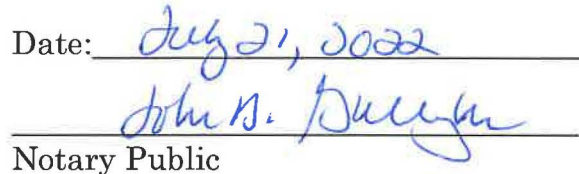 Date: July 21, 2022
John B.
Notary Public